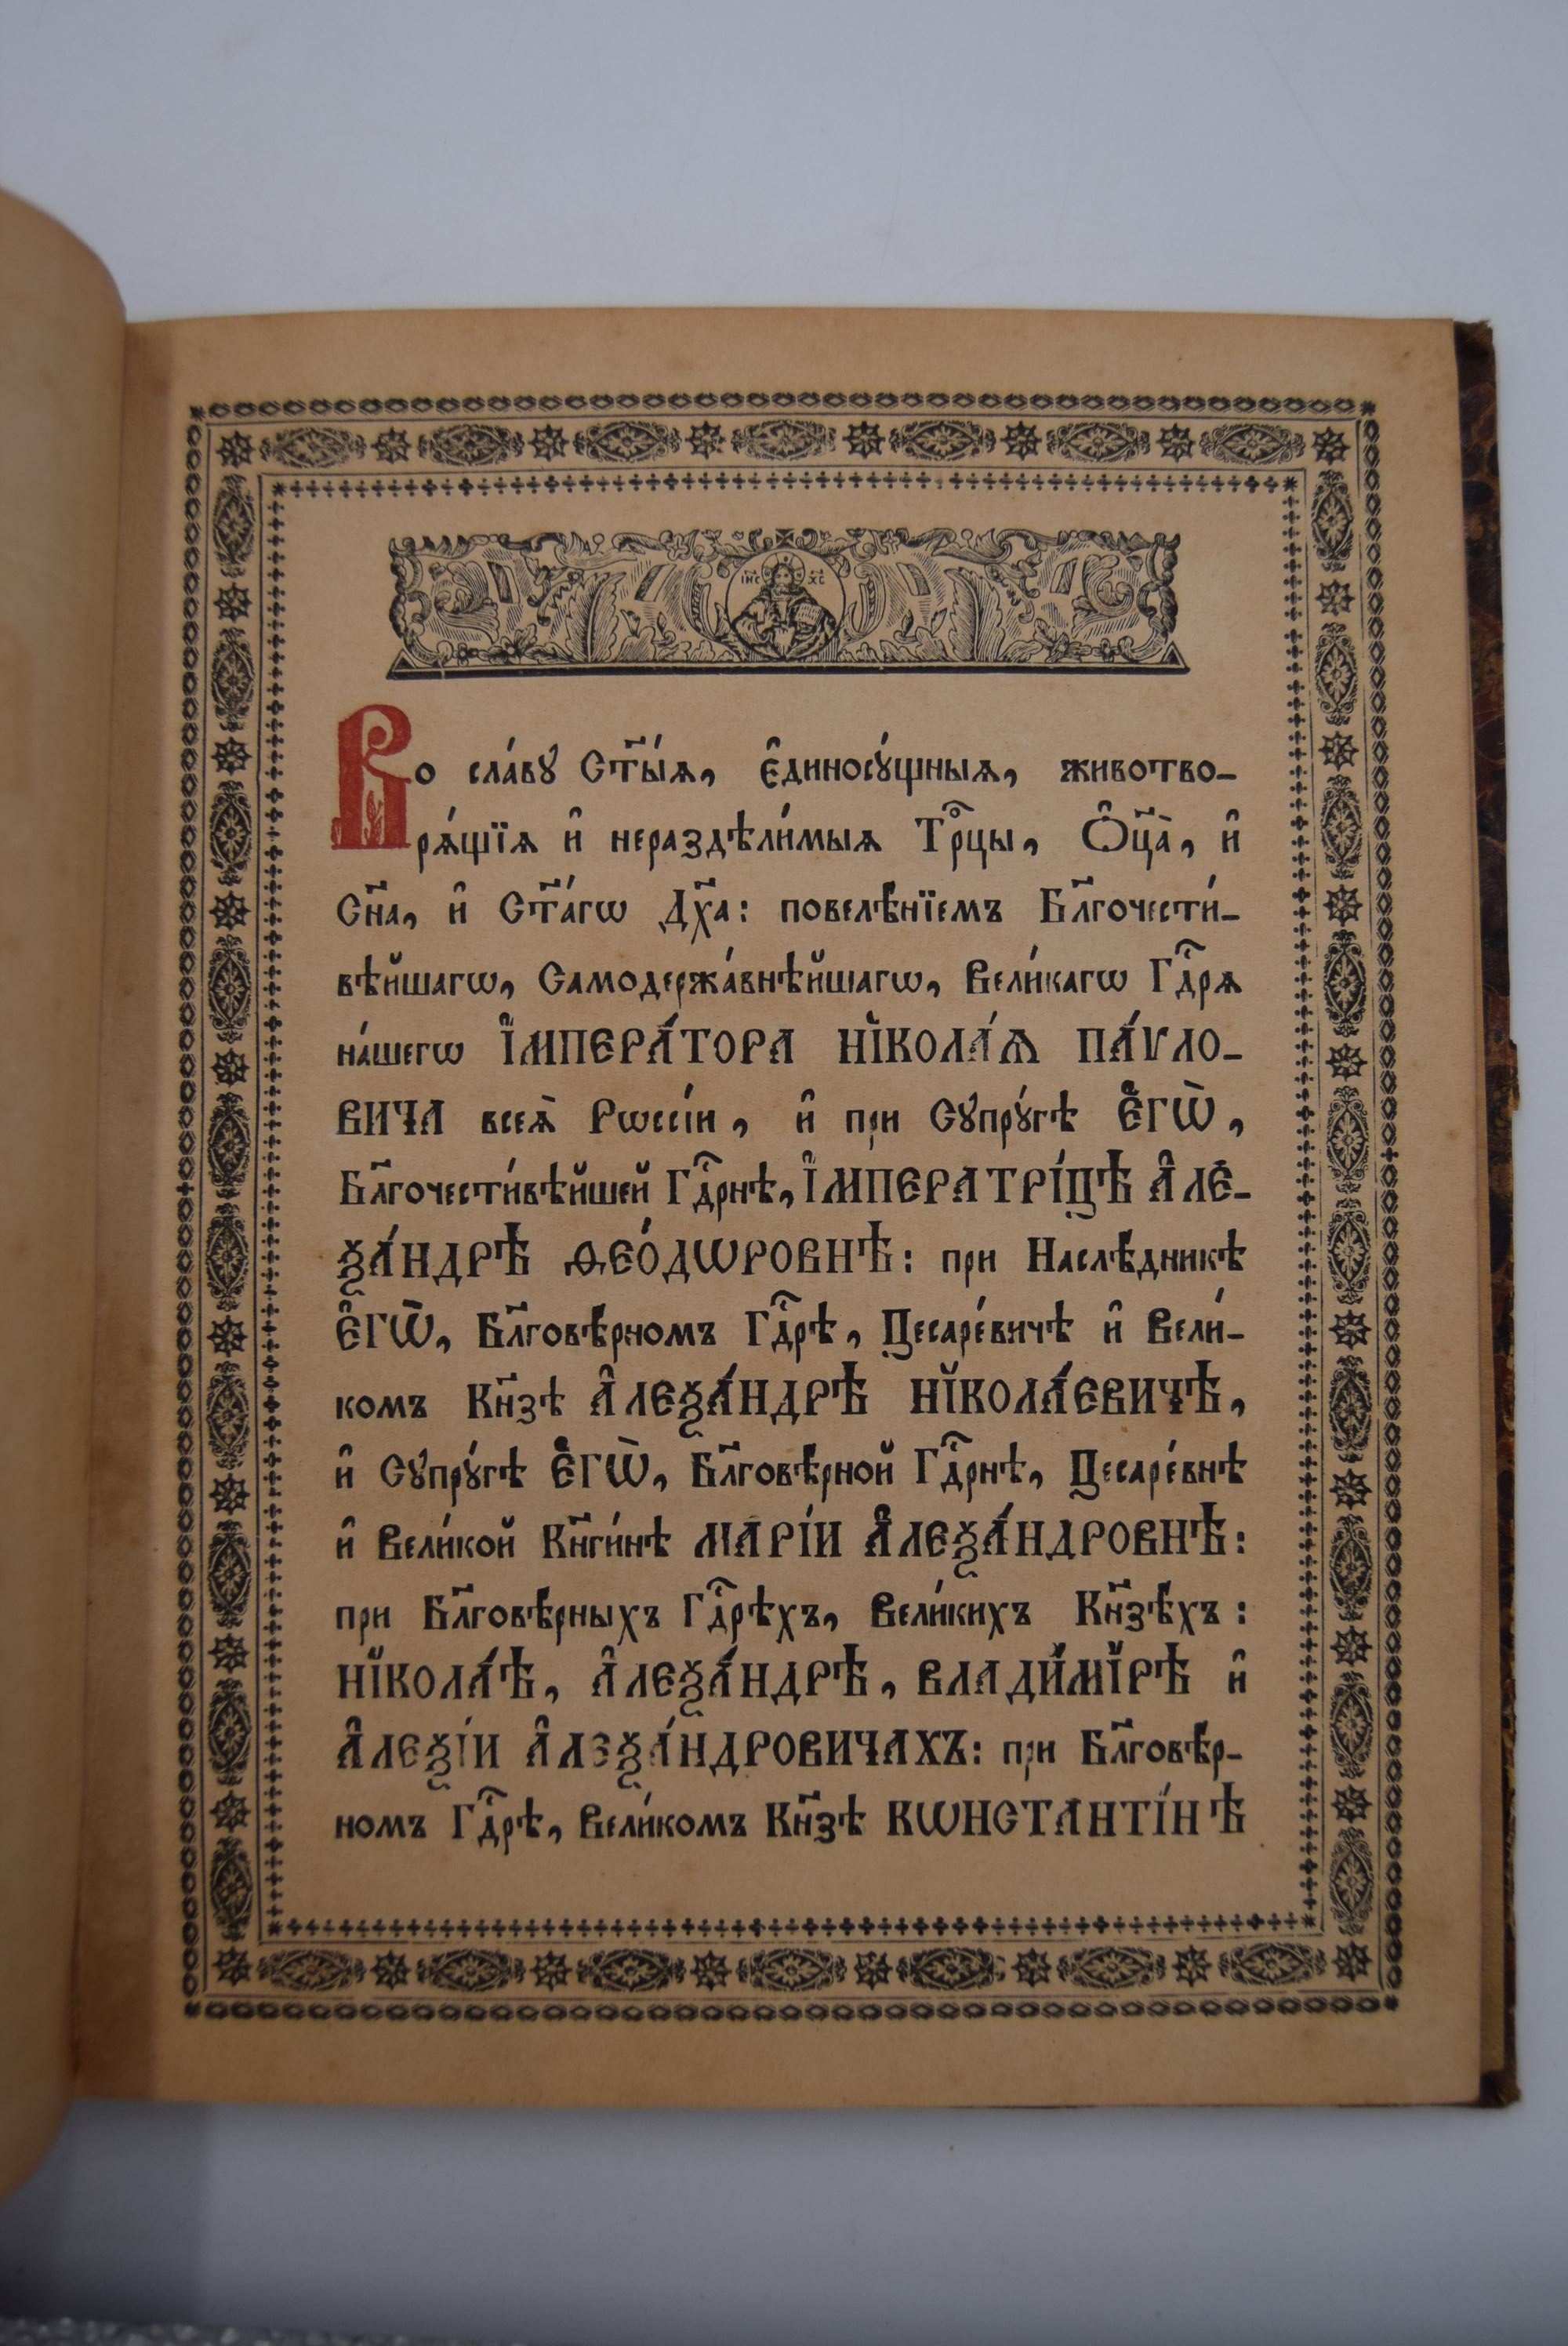 І҆ИС ХС
Во сла́вꙋ Ст҃ы́ѧ, є҆диносꙋ́щныѧ, животво-
рѧ́щїѧ и҆ нераздѣли́мыѧ Трⷪ҇цы, Ѻ҆ц҃а̀, и҆
Сн҃а, и҆ Ст҃а́гѡ Дх҃а: повелѣ́нїемъ Бл҃гочести́-
вѣйшагѡ, Самодержа́внѣйшагѡ, Вели́кагѡ Гдⷭ҇рѧ
на́шегѡ І҆МПЕРА́ТОРА НІКОЛА́Ѧ ПА́ѴЛО-
ВИЧА всеѧ̀ Рѡссі́и, и҆ при Сꙋпрꙋ́гѣ Є҆ГѠ̀,
Бл҃гочести́вѣйшей Гдⷭ҇рнѣ, І҆МПЕРАТРІ́ЦѢ А҆ЛЕ-
Ѯ́АНДРѢ ѲЕО́ДѠРОВНѢ: при Наслѣ́дникѣ
Є҆ГѠ̀, Бл҃говѣ́рномъ Гдⷭ҇рѣ, Цесаре́вичѣ и҆ Вели́-
комъ Кн҃зѣ А҆ЛЕѮА́НДРѢ НІКОЛА́ЕВИЧѢ,
и҆ Сꙋпрꙋ́гѣ Є҆ГѠ̀, Бл҃говѣ́рной Гдⷭ҇рнѣ, Цесаре́внѣ
и҆ Вели́кой Кн҃ги́нѣ МАРІ́И А҆ЛЕѮА́НДРОВНѢ:
при Бл҃говѣ́рныхъ Гдⷭ҇рѣхъ, Вели́кихъ Кн҃зѣ́хъ:
НІКОЛА́Ѣ, А҆ЛЕѮА́НДРѢ, ВЛАДИ́МІРѢ и҆
А҆ЛЕѮІ́И А҆ЛЕѮА́НДРОВИЧАХЪ: при Бл҃говѣ́р-
номъ Гдⷭ҇рѣ, Вели́комъ Кн҃зѣ КѠНСТАНТІ́НѢ